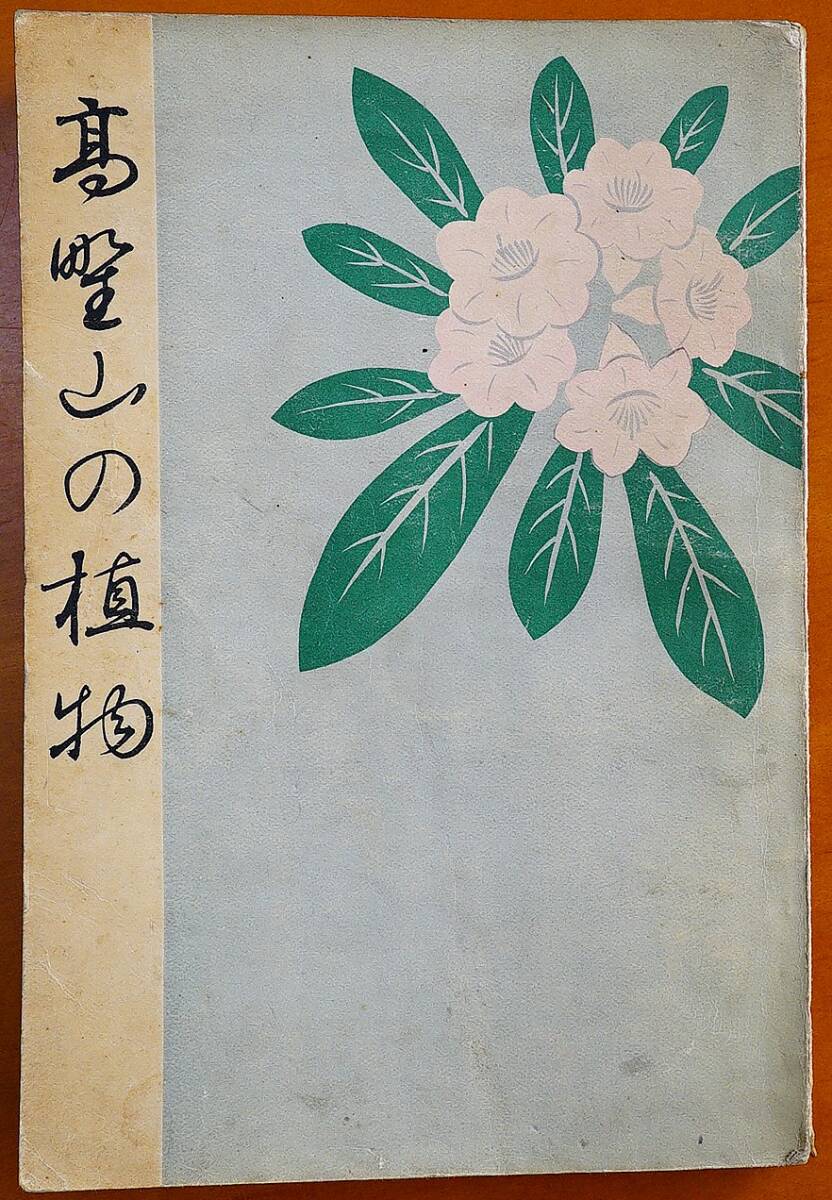 高野山の植物